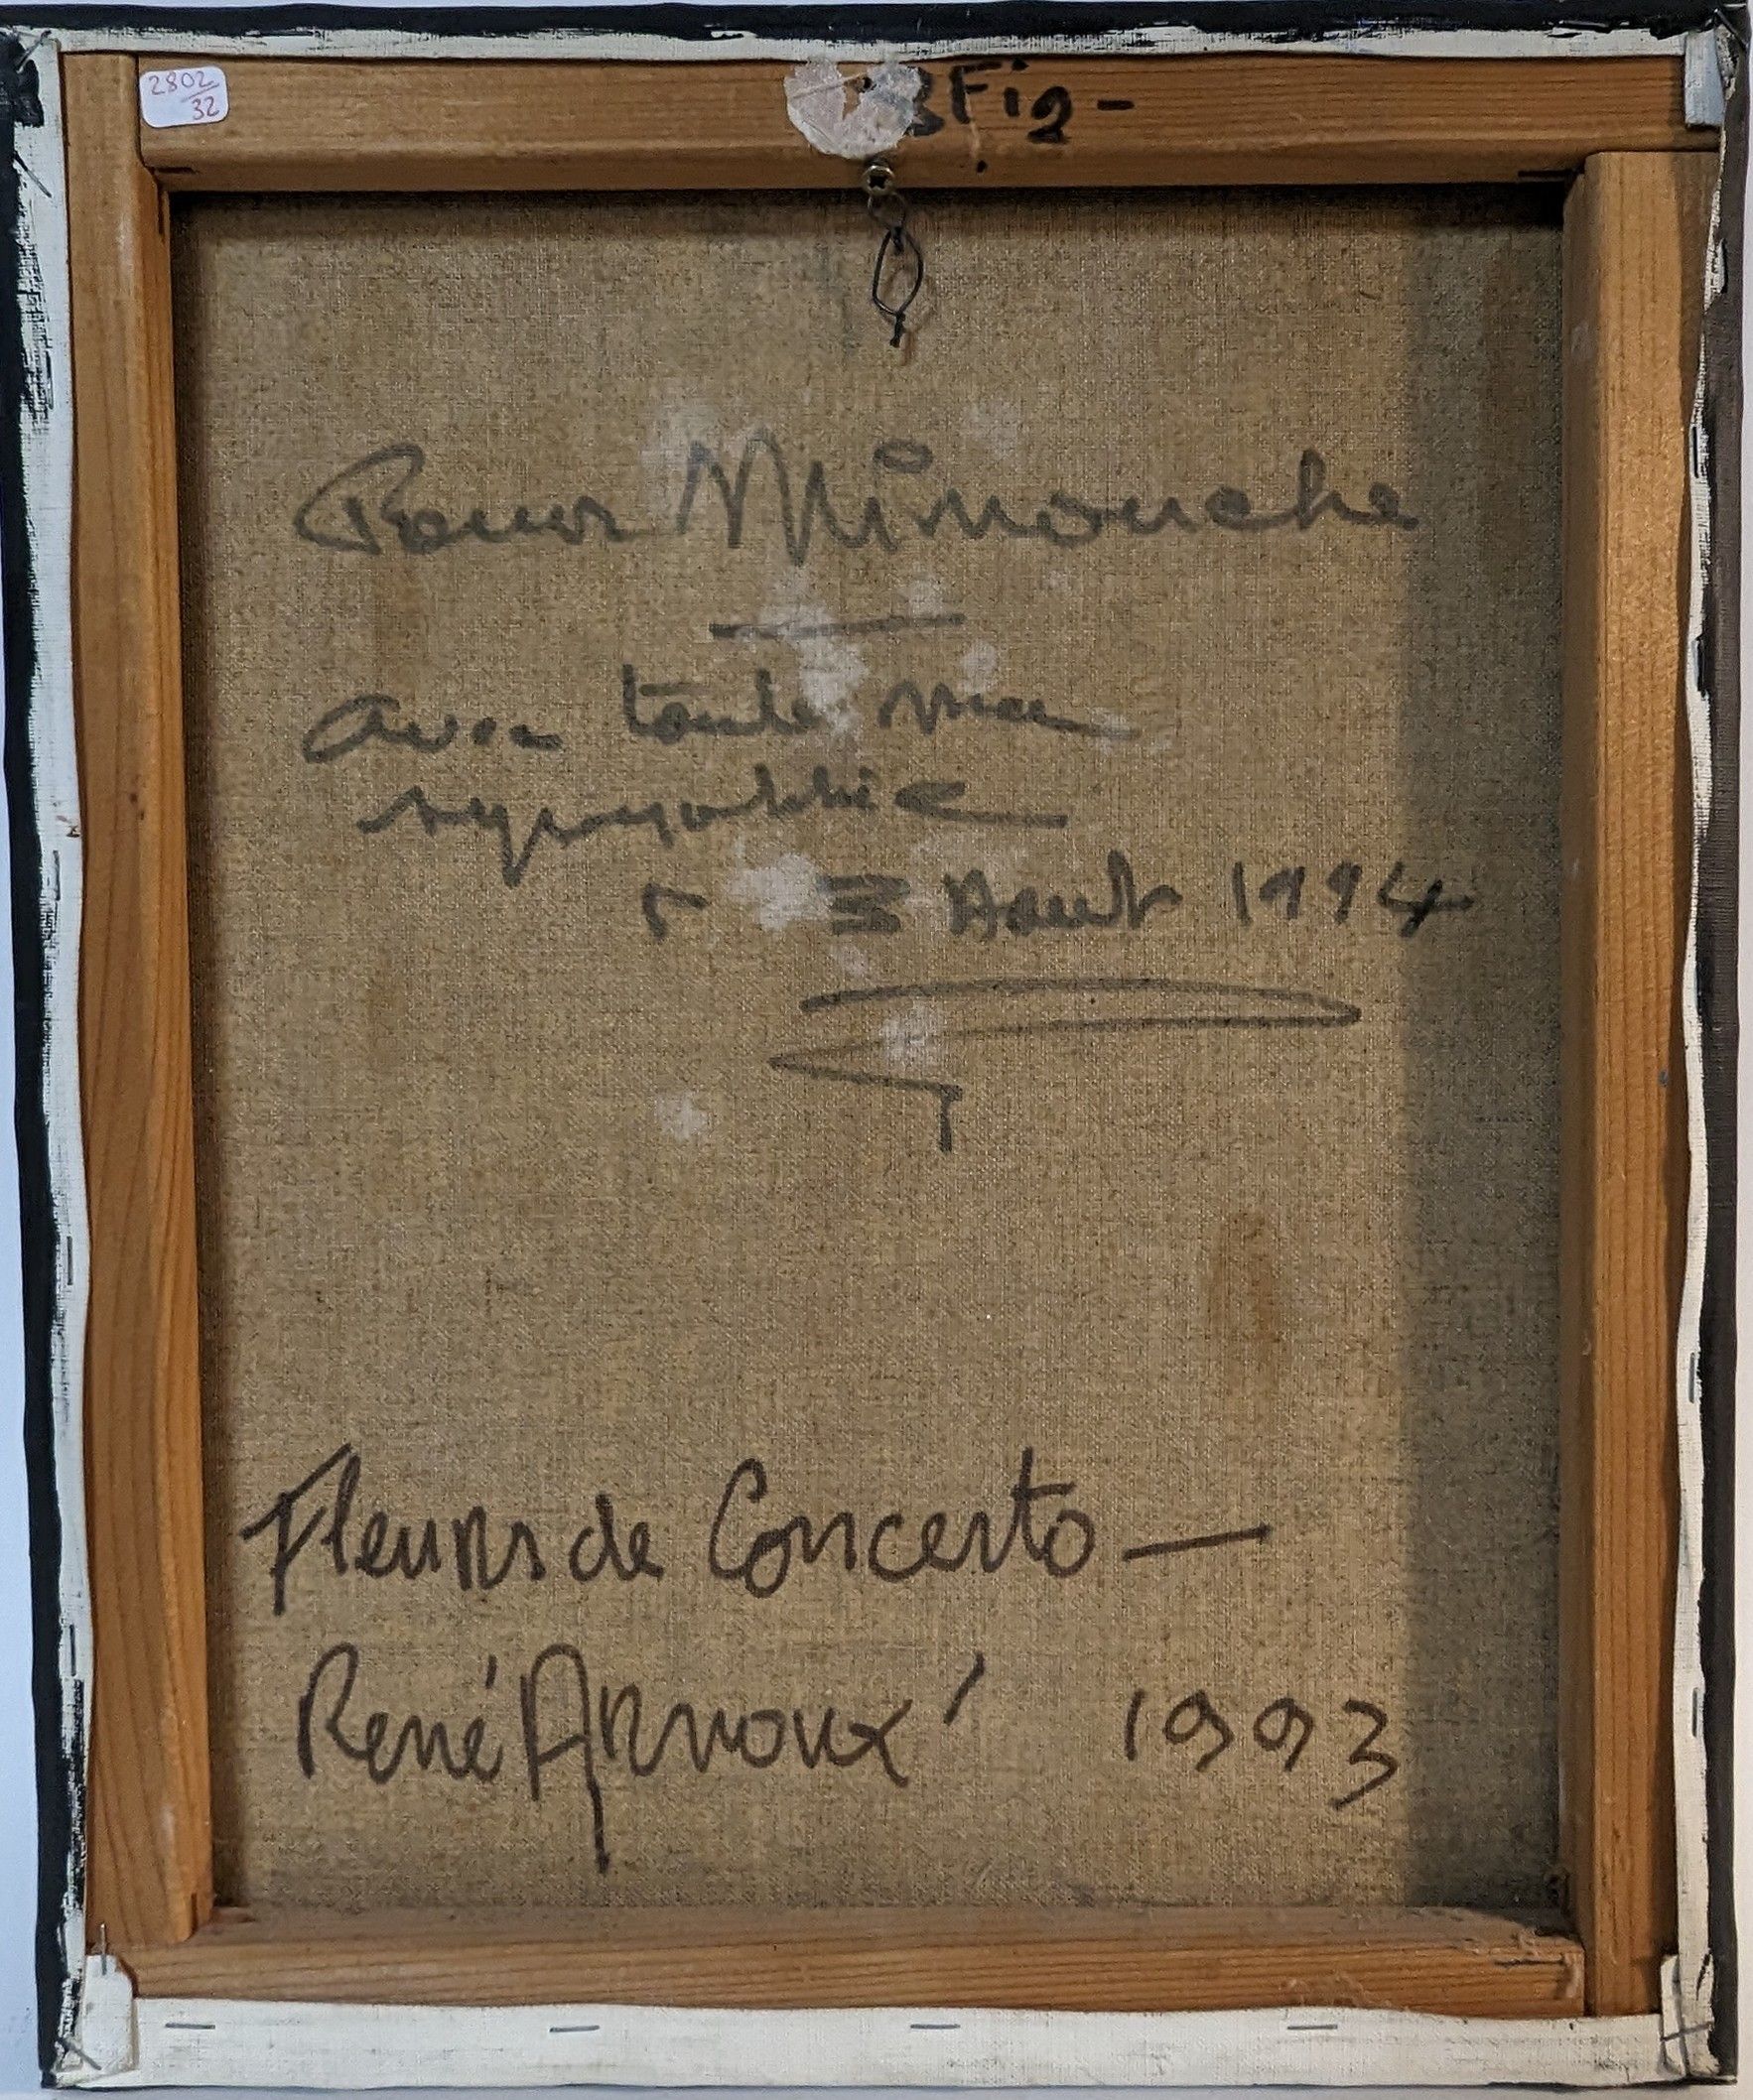 2802
32
8 Fig -
Pour Mimouche
avec toute ma
sympathie
Aout 1994
Fleurs de Concerto —
René Arnoux 1993